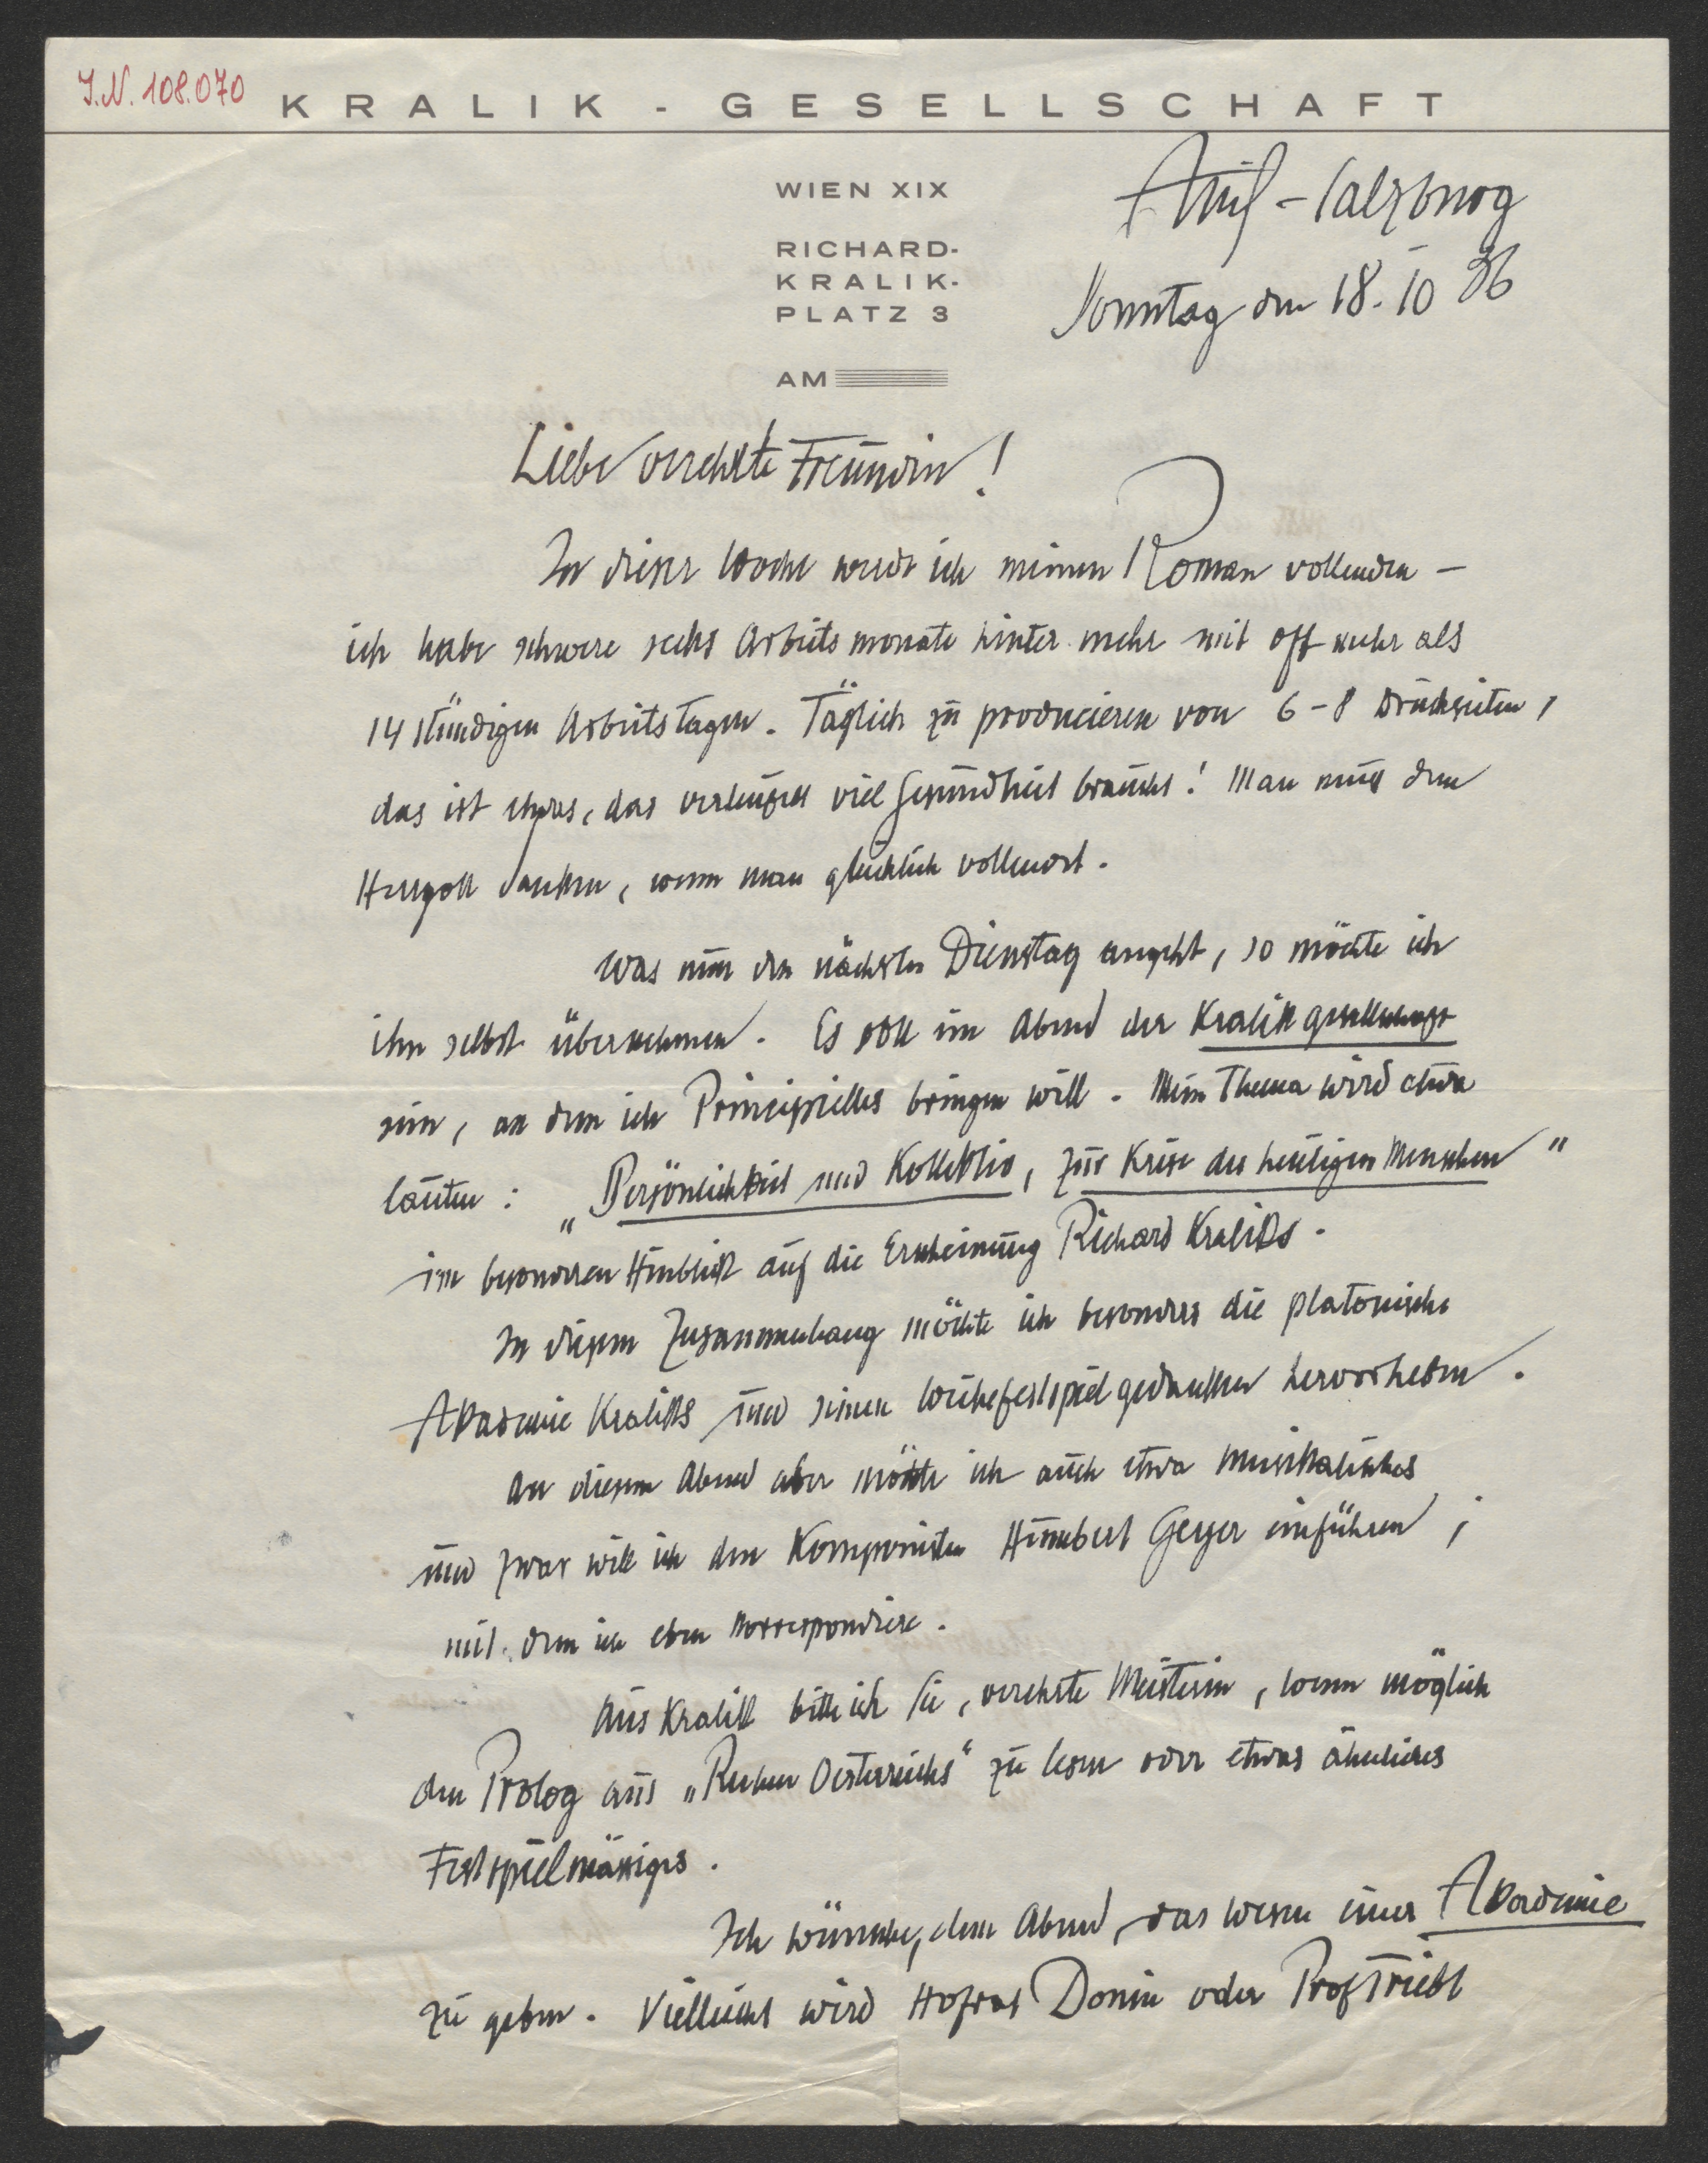 J.N. 108.070
KRALIK-GESELLSCHAFT
WIEN XIX
RICHARD-
KRALIK-
PLATZ 3
AM
Anif-Salzburg
Sonntag den 18. 10 36
Liebe verehrte Freundin!
In dieser Woche werde ich meinen Roman vollenden –
ich habe schwere sechs Arbeitsmonate hinter mehr mit oft mehr als
14 stündigen Arbeitstagen. Täglich zu producieren von 6–8 Druckseiten,
das ist etwas, das verteufelt viel Gesundheit braucht! Man muss dem
Herrgott danken, wenn man glücklich vollendet.
Was nun den nächsten Dienstag angeht, so möchte ich
ihn selbst übernehmen. Es soll ein Abend der Kralikgesellschaft
sein, an dem ich Principielles bringen will. Mein Thema wird etwa
lauten: „Persönlichkeit und Kollektiv, zur Krise des heutigen Menschen"
im besonderen Hinblick auf die Erscheinung Richard Kraliks.
In diesem Zusammenhang möchte ich besonders die platonische
Akademie Kraliks und seinen Weihefestspielgedanken hervorheben.
An diesem Abend aber möchte ich auch etwa Musikalisches
und zwar will ich den Komponisten Geyer einführen,
mit dem ich eben korrespondiere.
Aus Kralik bitte ich Sie, verehrte Meisterin, wenn möglich
den Prolog aus „ Oesterreichs" zu lesen oder etwas ähnliches
Festspielmässiges.
Ich wünsche, dem Abend, das Wesen einer Akademie
zu geben. Vielleicht wird Hofrat Donin oder Prof